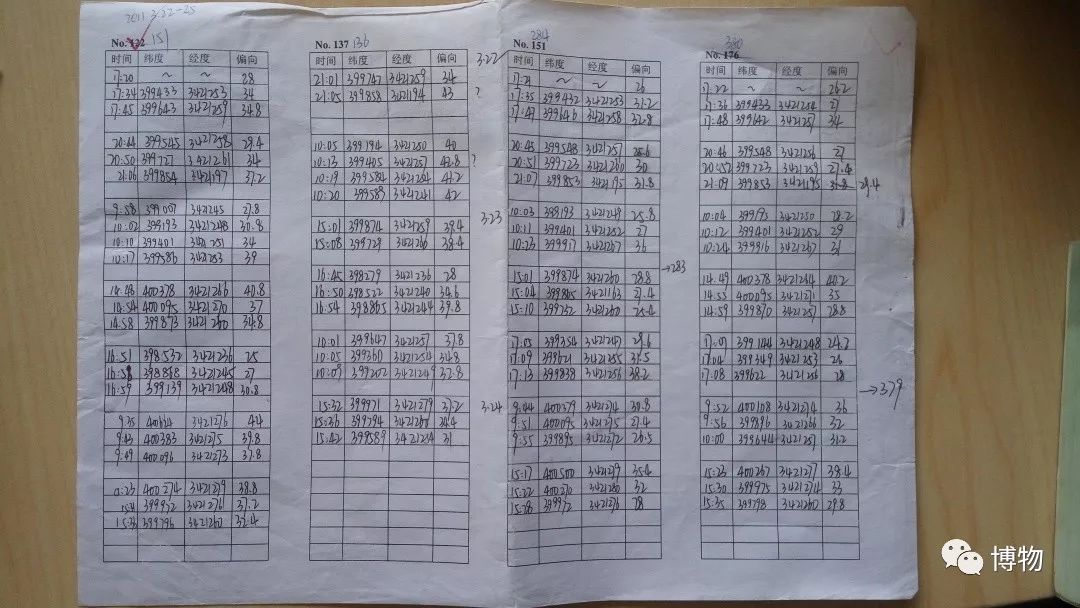 2011 3.22-25
No. 132 151
时间 纬度 经度 偏向
17:20 ~ ~ 28
17:34 399433 3421253 34
17:45 399643 3421259 34.8
20:44 399545 3421258 29.4
20:50 399727 3421261 34
21:06 399854 3421197 37.2
9:58 399007 3421245 27.8
10:02 399193 3421248 30.8
10:10 399401 3421251 34
10:17 399586 3421253 39
14:48 400378 3421266 40.8
14:54 400095 3421270 37
14:58 399873 3421260 34.8
16:51 398532 3421236 25
16:58 398868 3421245 27
16:59 399139 3421248 30.8
9:35 3421276 44
9:43 400383 3421275 39.8
9:49 400096 3421273 37.8
400274 3421279 38.8
399952 3421276 37.2
399796 3421260 32.4
No. 137 136
时间 纬度 经度 偏向
21:01 399747 3421259 34
21:05 399858 3421194 43
10:05 399194 3421250 40
10:13 399405 3421251 42.8
10:19 399584 3421264 41.2
10:20 399589 3421241 42
15:01 399874 3421259 39.4
15:08 399729 3421260 38.4
16:45 398279 3421236 28
16:50 398522 3421240 34.6
16:54 398865 3421244 39.8
10:01 399647 3421257 37.8
10:05 399360 3421254 34.8
10:09 399202 3421249 32.8
15:32 399971 3421279 37.2
15:36 399794 3421260 34.4
15:42 399589 3421254 31
3.22
?
?
3.23
3.24
284
No. 151
时间 纬度 经度 偏向
17:21 ~ ~ 26
17:35 399432 3421253 31.2
17:47 399646 3421258 32.8
20:45 399548 3421257 28.6
20:51 399723 3421260 30
21:07 399853 3421195 31.8
10:03 399193 3421249 25.8
10:11 399401 3421252 27
10:23 399917 3421267 36
→283
15:01 399874 3421260 28.8
15:04 399805 3421163 27.4
15:10 399752 3421260 25.4
17:05 399354 3421247 29.6
17:09 399621 3421255 33.5
17:13 399838 3421256 38.2
9:44 400379 3421274 30.8
9:51 400095 3421275 27.4
9:55 399895 3421272 26.5
15:17 400500 3421279 35.4
15:22 400270 3421280 32
15:28 399972 3421276 28
380
No. 176
时间 纬度 经度 偏向
17:22 ~ ~ 26.2
17:36 399433 3421254 27
17:48 399642 3421257 34
20:46 399548 3421256 27
20:52 399723 3421259 27.4
21:09 399853 3421195 31.8 29.4
10:04 399195 3421250 28.2
10:12 399401 3421252 29
10:24 399916 3421267 31
14:49 400378 3421264 40.2
14:55 400095 3421271 35
14:59 399870 3421257 28.8
17:01 399144 3421248 24.2
17:04 399349 3421253 26
17:08 399622 3421256 28
→379
9:52 400108 3421274 36
9:56 399896 3421266 32
10:00 399644 3421257 31.2
15:23 400267 3421277 38.4
15:30 399975 3421274 33
15:35 399798 3421260 29.8
博物